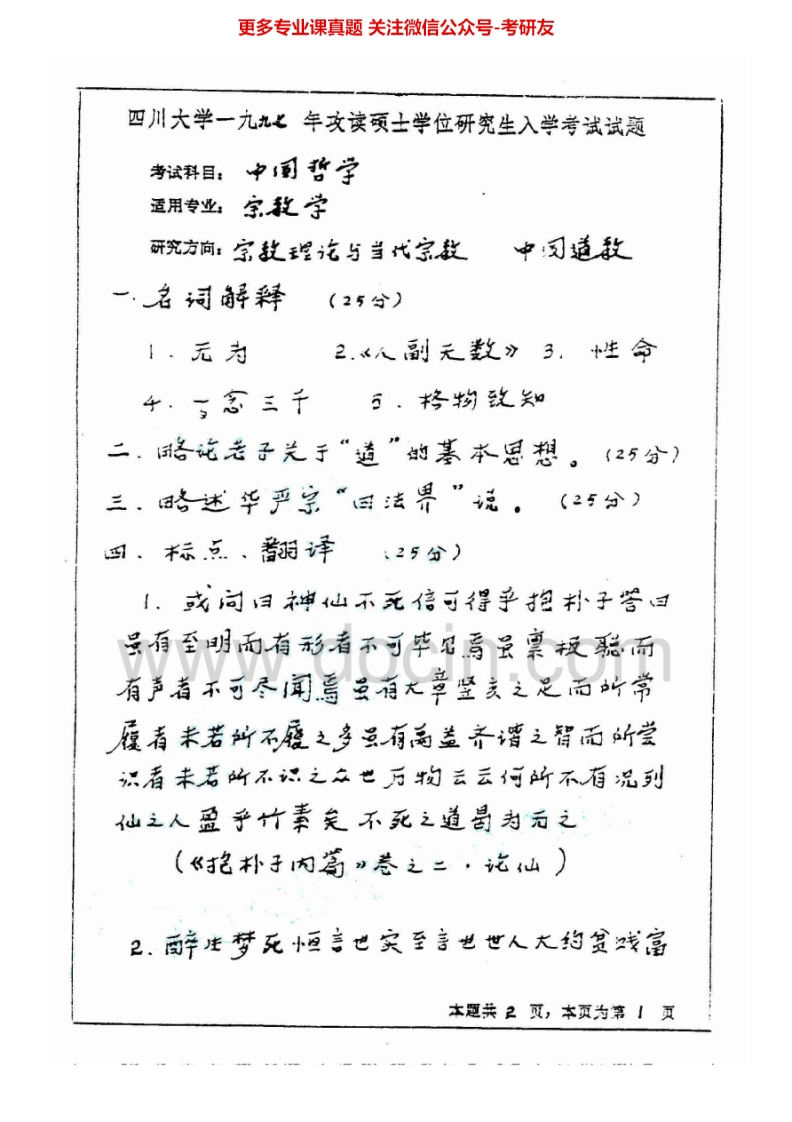 更多专业课真题 关注微信公众号-考研友
四川大学一九九七 年攻读硕士学位研究生入学考试试题
考试科目：中国哲学
适用专业：宗教学
研究方向：宗教理论与当代宗教 中国道教
一.名词解释 (25分)
1.无为 2.《人副天数》 3.性命
4.一念三千 5.格物致知
二.略论老子关于“道”的基本思想。(25分)
三.略述华严宗“四法界”说。(25分)
四.标点、翻译 (25分)
1.或问曰神仙不死信可得乎抱朴子答曰
虽有至明而有形者不可毕见焉虽禀极聪而
有声者不可尽闻焉虽有大章竖亥之足而所常
履者未若所不履之多虽有禹益齐谐之智而所尝
识者未若所不识之众也万物云云何所不有况列
仙之人盈乎竹素矣不死之道曷为无之
(《抱朴子内篇》卷之二·论仙)
www.docin.com
2.醉生梦死恒言也实至言也世人大约贫贱富
本题共 2 页，本页为第 1 页